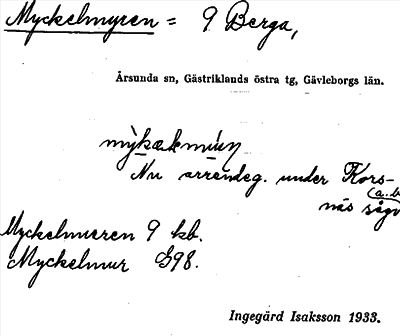 Myckelmyren = 9 Berga,
Årsunda sn, Gästriklands östra tg, Gävleborgs län.
Nu arrendeg. under Kors-
näs sågv
Myckelmueren 9 kb.
Myckelmur G98.
Ingegärd Isaksson 1933.